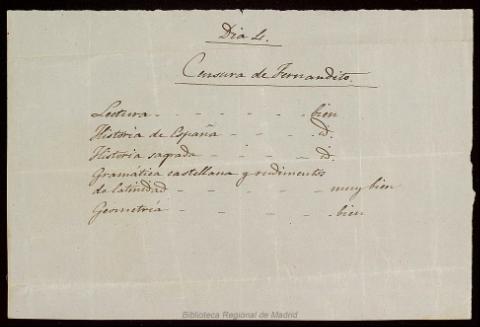 Dia 4.
Censura de Fernandito.
Lectura - - - - - - - bien
Historia de España - - - - id.
Historia sagrada - - - - - id.
Gramática castellana y rudimentos
de latinidad - - - - - - muy bien
Geometría - - - - - - bien
Biblioteca Regional de Madrid